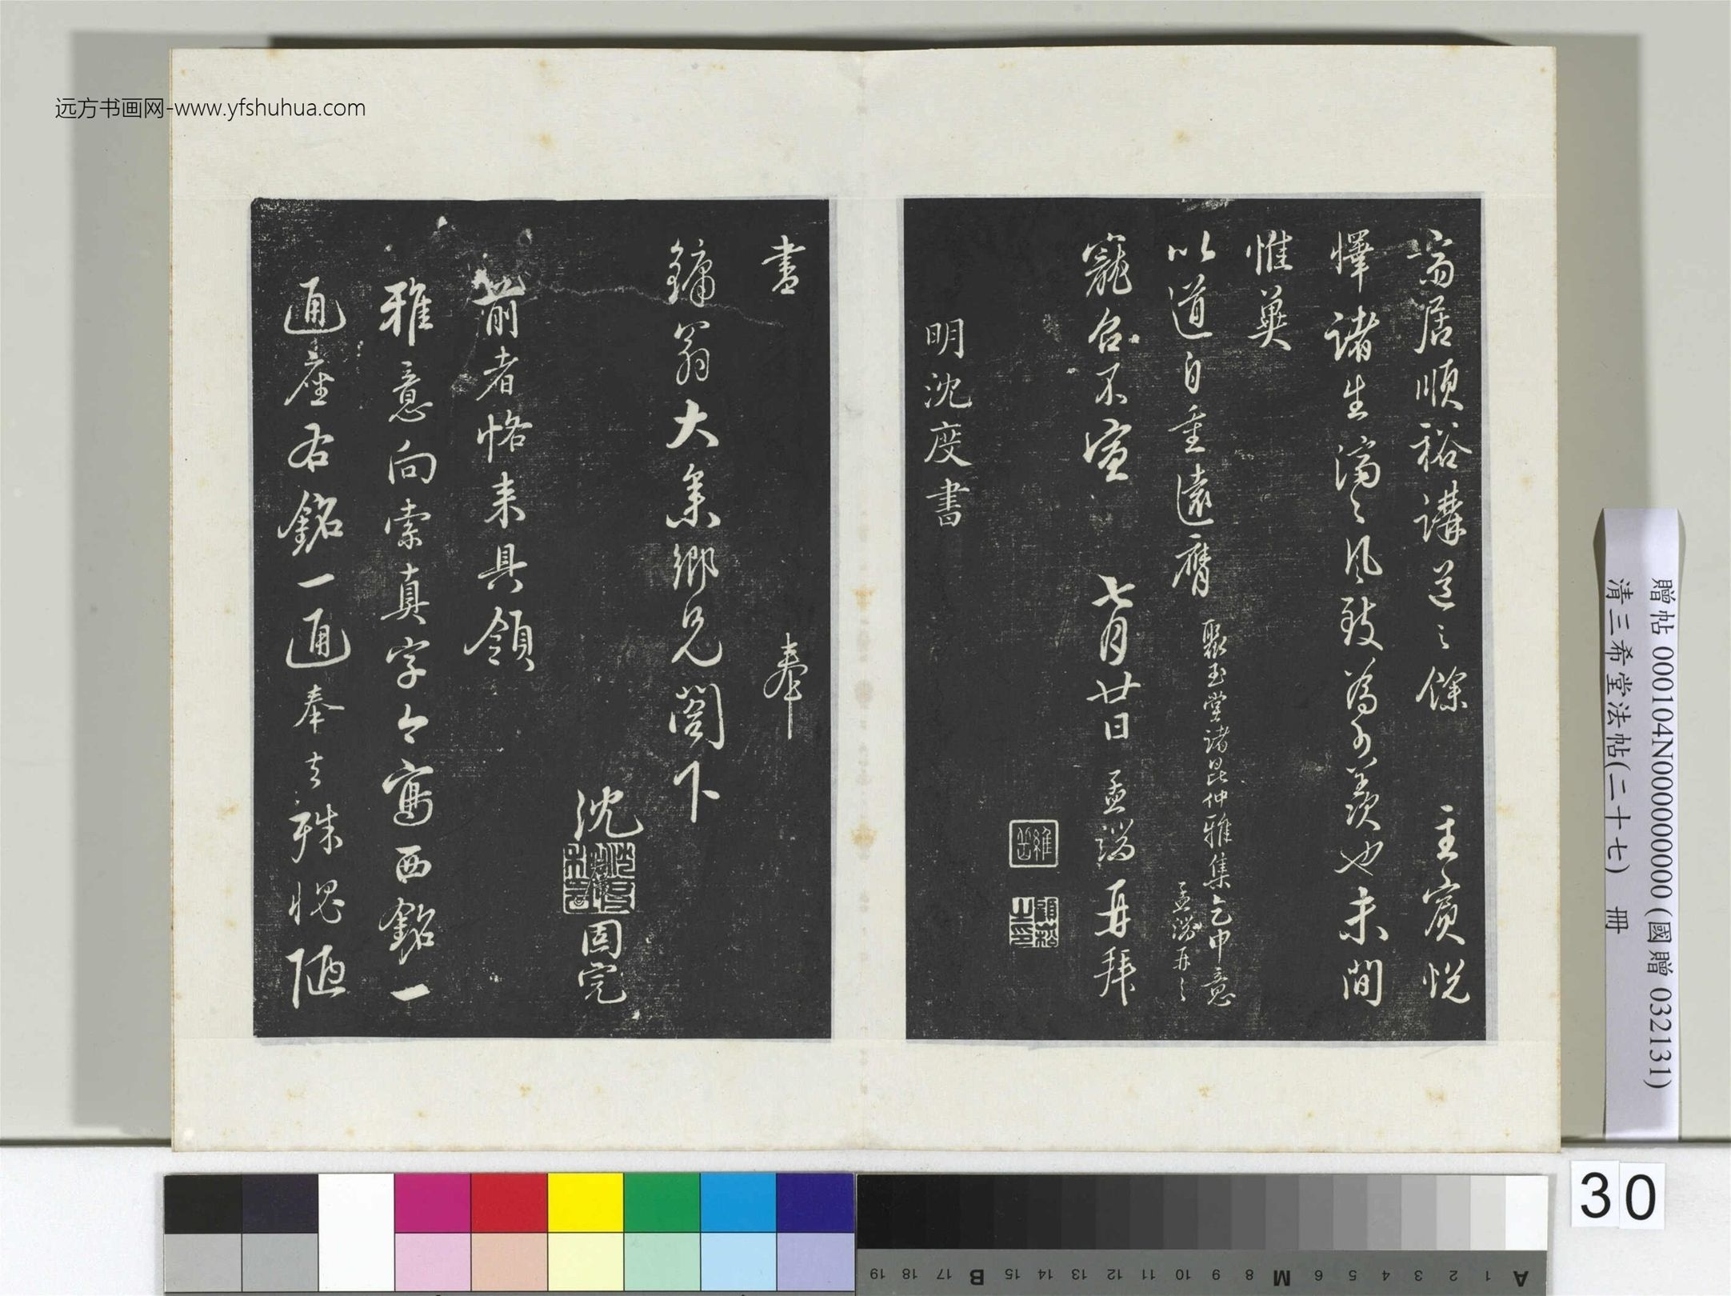 远方书画网-www.yfshuhua.com
端居順裕講道之餘 主賓悦
懌諸生濟之風致為可羡也未間
惟冀
以道自重遠膺
聚玉堂諸昆仲雅集乞申意
孟端再
寵召不宣 七月廿日 孟端再拜
明沈度書
書 奉
鏞翁大參鄉兄閣下
沈
固完
前者恪来具領
雅意向索真字今寫西銘一
通座右銘一通奉去殊愧陋
贈帖 000104N000000000 (國贈 032131)
清三希堂法帖(二十七) 冊
30
19 18 17 B 15 14 13 12 11 10 9 8 M 6 5 4 3 2 1 A